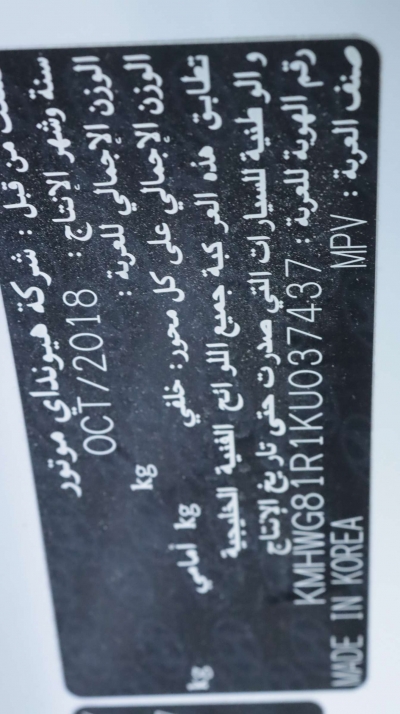 صنعت من قبل : شركة هيونداي موتور
سنة وشهر الإنتاج : OCT/2018
الوزن الإجمالي للعربة : kg
الوزن الإجمالي على كل محور: خلفي kg أمامي kg
تطابق هذه العركبة جميع اللوائح الفنية الخليجية
و الوطنية للسيارات التي صدرت حتى تاريخ الإنتاج
رقم الهوية للعربة : KMHWG81R1KU037437
صنف العربة : MPV MADE IN KOREA